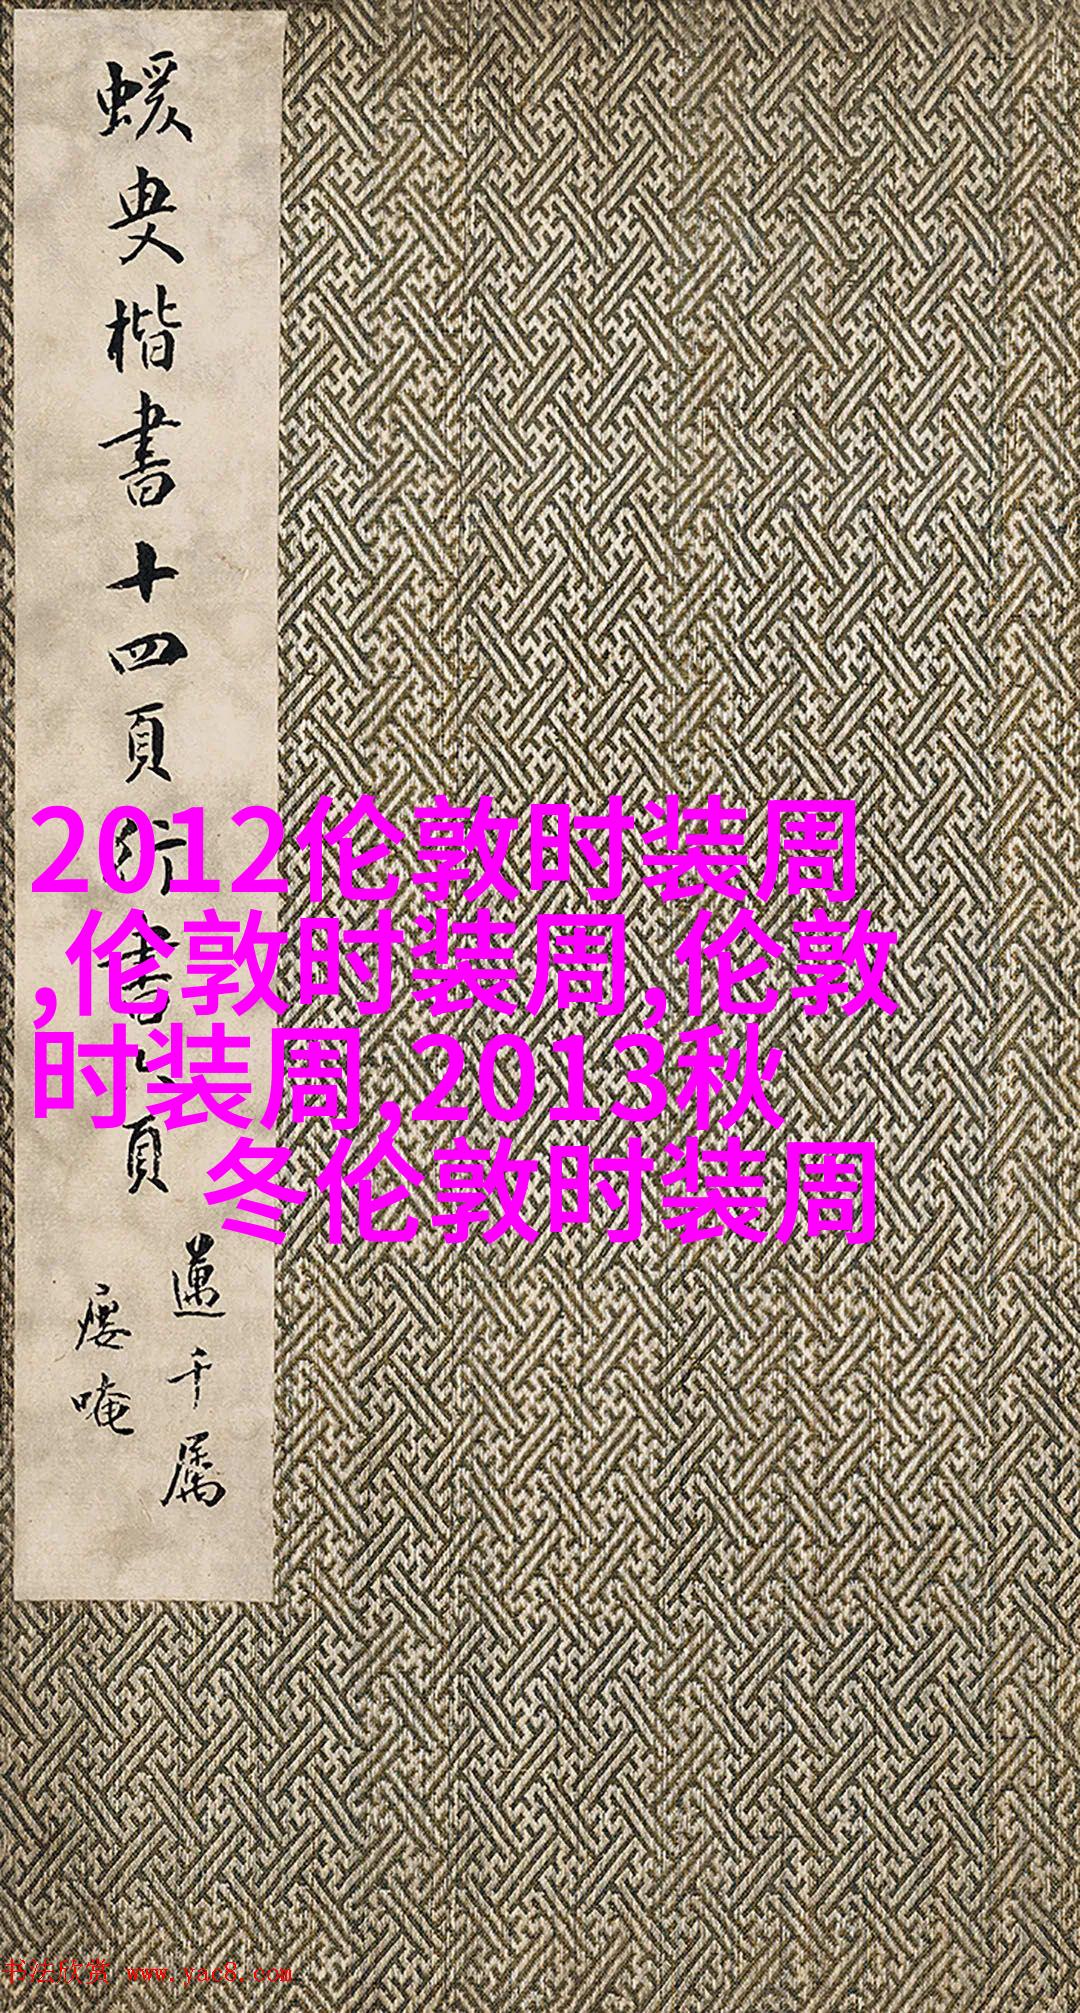 蝯叟楷書十四頁行書八頁
2012伦敦时装周
,伦敦时装周,伦敦
时装周,2013秋
冬伦敦时装周
千属
书法欣赏 www.yac8.com